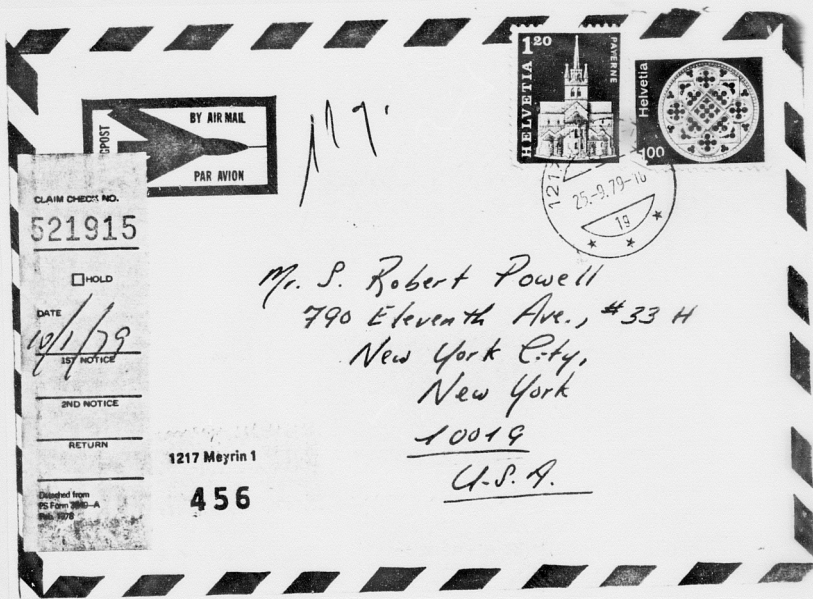 1 20
HELVETIA
PAYERNE
Helvetia
100
BY AIR MAIL
PAR AVION
1217
25.-9.79-
19
CLAIM CHECK NO.
521915
HOLD
DATE
10/1/79
1ST NOTICE
2ND NOTICE
RETURN
Detached from
PS Form 3849-A
Feb. 1978
Mr. S. Robert Powell
790 Eleventh Ave., #33 H
New York City,
New York
10019
U.S.A.
1217 Meyrin 1
456